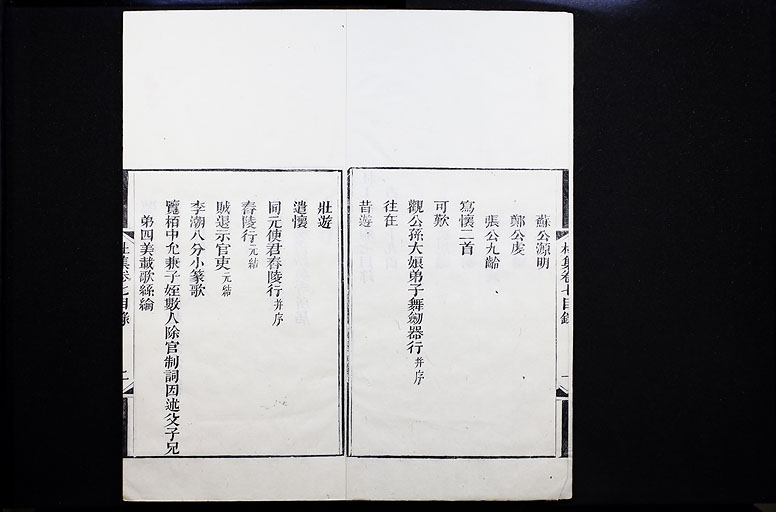 蘇公源明
鄭公虔
張公九齡
寫懷二首
可歎
觀公孫大娘弟子舞劒器行并序
往在
昔遊
壯遊
遣懷
同元使君舂陵行并序
舂陵行元結
賊退示官吏元結
李潮八分小篆歌
覽栢中允兼子姪數人除官制詞因述父子兄
弟四美載歌絲綸
杜集卷七目錄
二